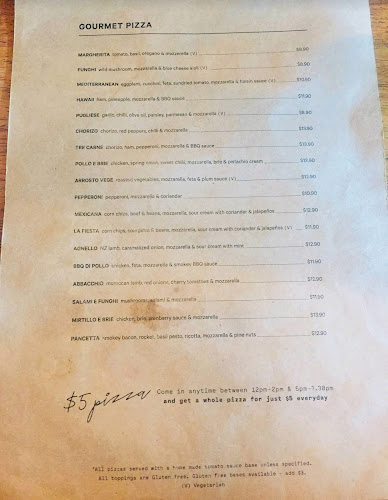 GOURMET PIZZA
MARGHERITA tomato, basil, oregano & mozzarella (V) $9.90
FUNGHI wild mushroom, mozzarella & blue cheese aioli (V) $9.90
MEDITERRANEAN eggplant, zucchini, feta, sundried tomato, mozzarella & fusion sauce (V) $10.90
HAWAII ham, pineapple, mozzarella & BBQ sauce $11.90
PUGLIESE garlic, chilli, olive oil, parsley, parmesan & mozzarella (V) $8.90
CHORIZO chorizo, red peppers, chilli & mozzarella $11.90
TRE CARNE chorizo, ham, pepperoni, mozzarella & BBQ sauce $12.90
POLLO E BRIE chicken, spring onion, sweet chilli, mozzarella, brie & pistachio cream
ARROSTO VEGE roasted vegetables, mozzarella, feta & plum sauce (V)
PEPPERONI pepperoni, mozzarella & coriander $10.90
MEXICANA corn chips, beef & beans, mozzarella, sour cream with coriander & jalapeños $12.90
LA FIESTA corn chips, capsicums & beans, mozzarella, sour cream with coriander & jalapeños (V) $11.90
AGNELLO NZ lamb, caramelized onion, mozzarella & sour cream with mint $12.90
BBQ DI POLLO chicken, feta, mozzarella & smokey BBQ sauce $11.90
ABBACCHIO moroccan lamb, red onions, cherry tomatoes & mozzarella $12.90
SALAMI E FUNGHI mushroom, salami & mozzarella $11.90
MIRTILLO E BRIE chicken, brie, cranberry sauce & mozzarella $12.90
PANCETTA smokey bacon, rocket, basil pesto, ricotta, mozzarella & pine nuts $12.90
$5 pizza Come in anytime between 12pm-2pm & 5pm-7.30pm
and get a whole pizza for just $5 everyday
*All pizzas served with a home made tomato sauce base unless specified.
All toppings are Gluten Free, Gluten free bases available - add $3.
(V) Vegetarian